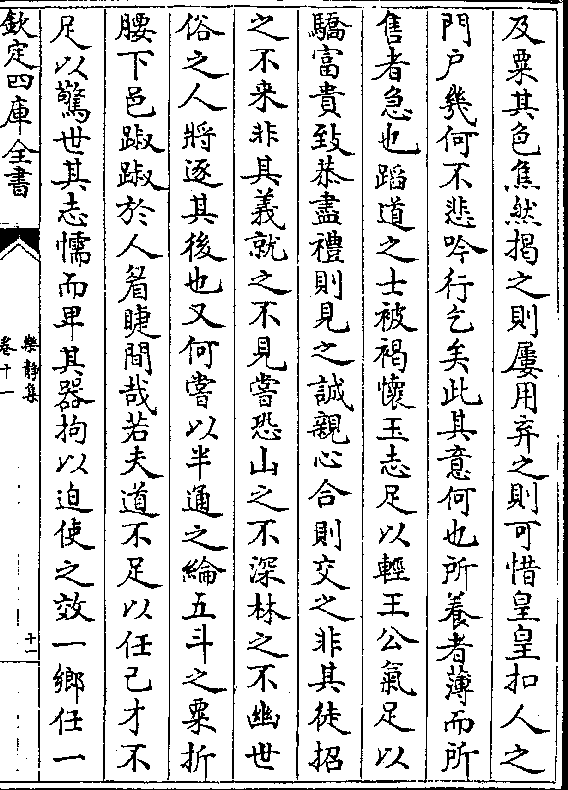 及粟其色焦然揭之則屢用弃之則可惜皇皇扣人之
門户幾何不悲吟行乞矣此其意何也所養者薄而所
售者急也蹈道之士被褐懷玉志足以輕王公氣足以
驕富貴致恭盡禮則見之誠親心合則交之非其徒招
之不来非其義就之不見嘗恐山之不深林之不幽世
俗之人將逐其後也又何嘗以半通之綸五斗之粟折
腰下邑踧踧於人眉睫間哉若夫道不足以任己才不
足以驚世其志懦而卑其器拘以迫使之效一鄉任一
欽定四庫全書
樂静集
卷十一
十一